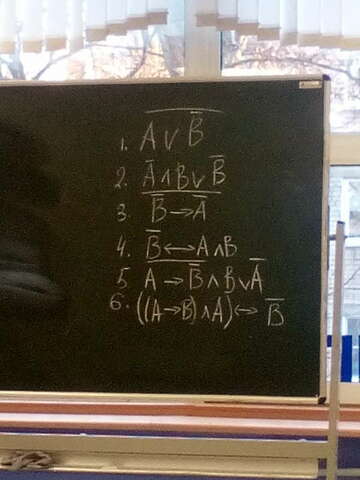 1. A̅ ̅∨̅ ̅B̿
2. A̅ ∧ B ∨ B̅
3. B̿ ̅→̅ ̅A̿
4. B̅ ↔ A ∧ B
5. A̅ ̅→̅ ̅B̿ ∧ B ∨ A̅
6. ((A → B) ∧ A) ↔ B̅